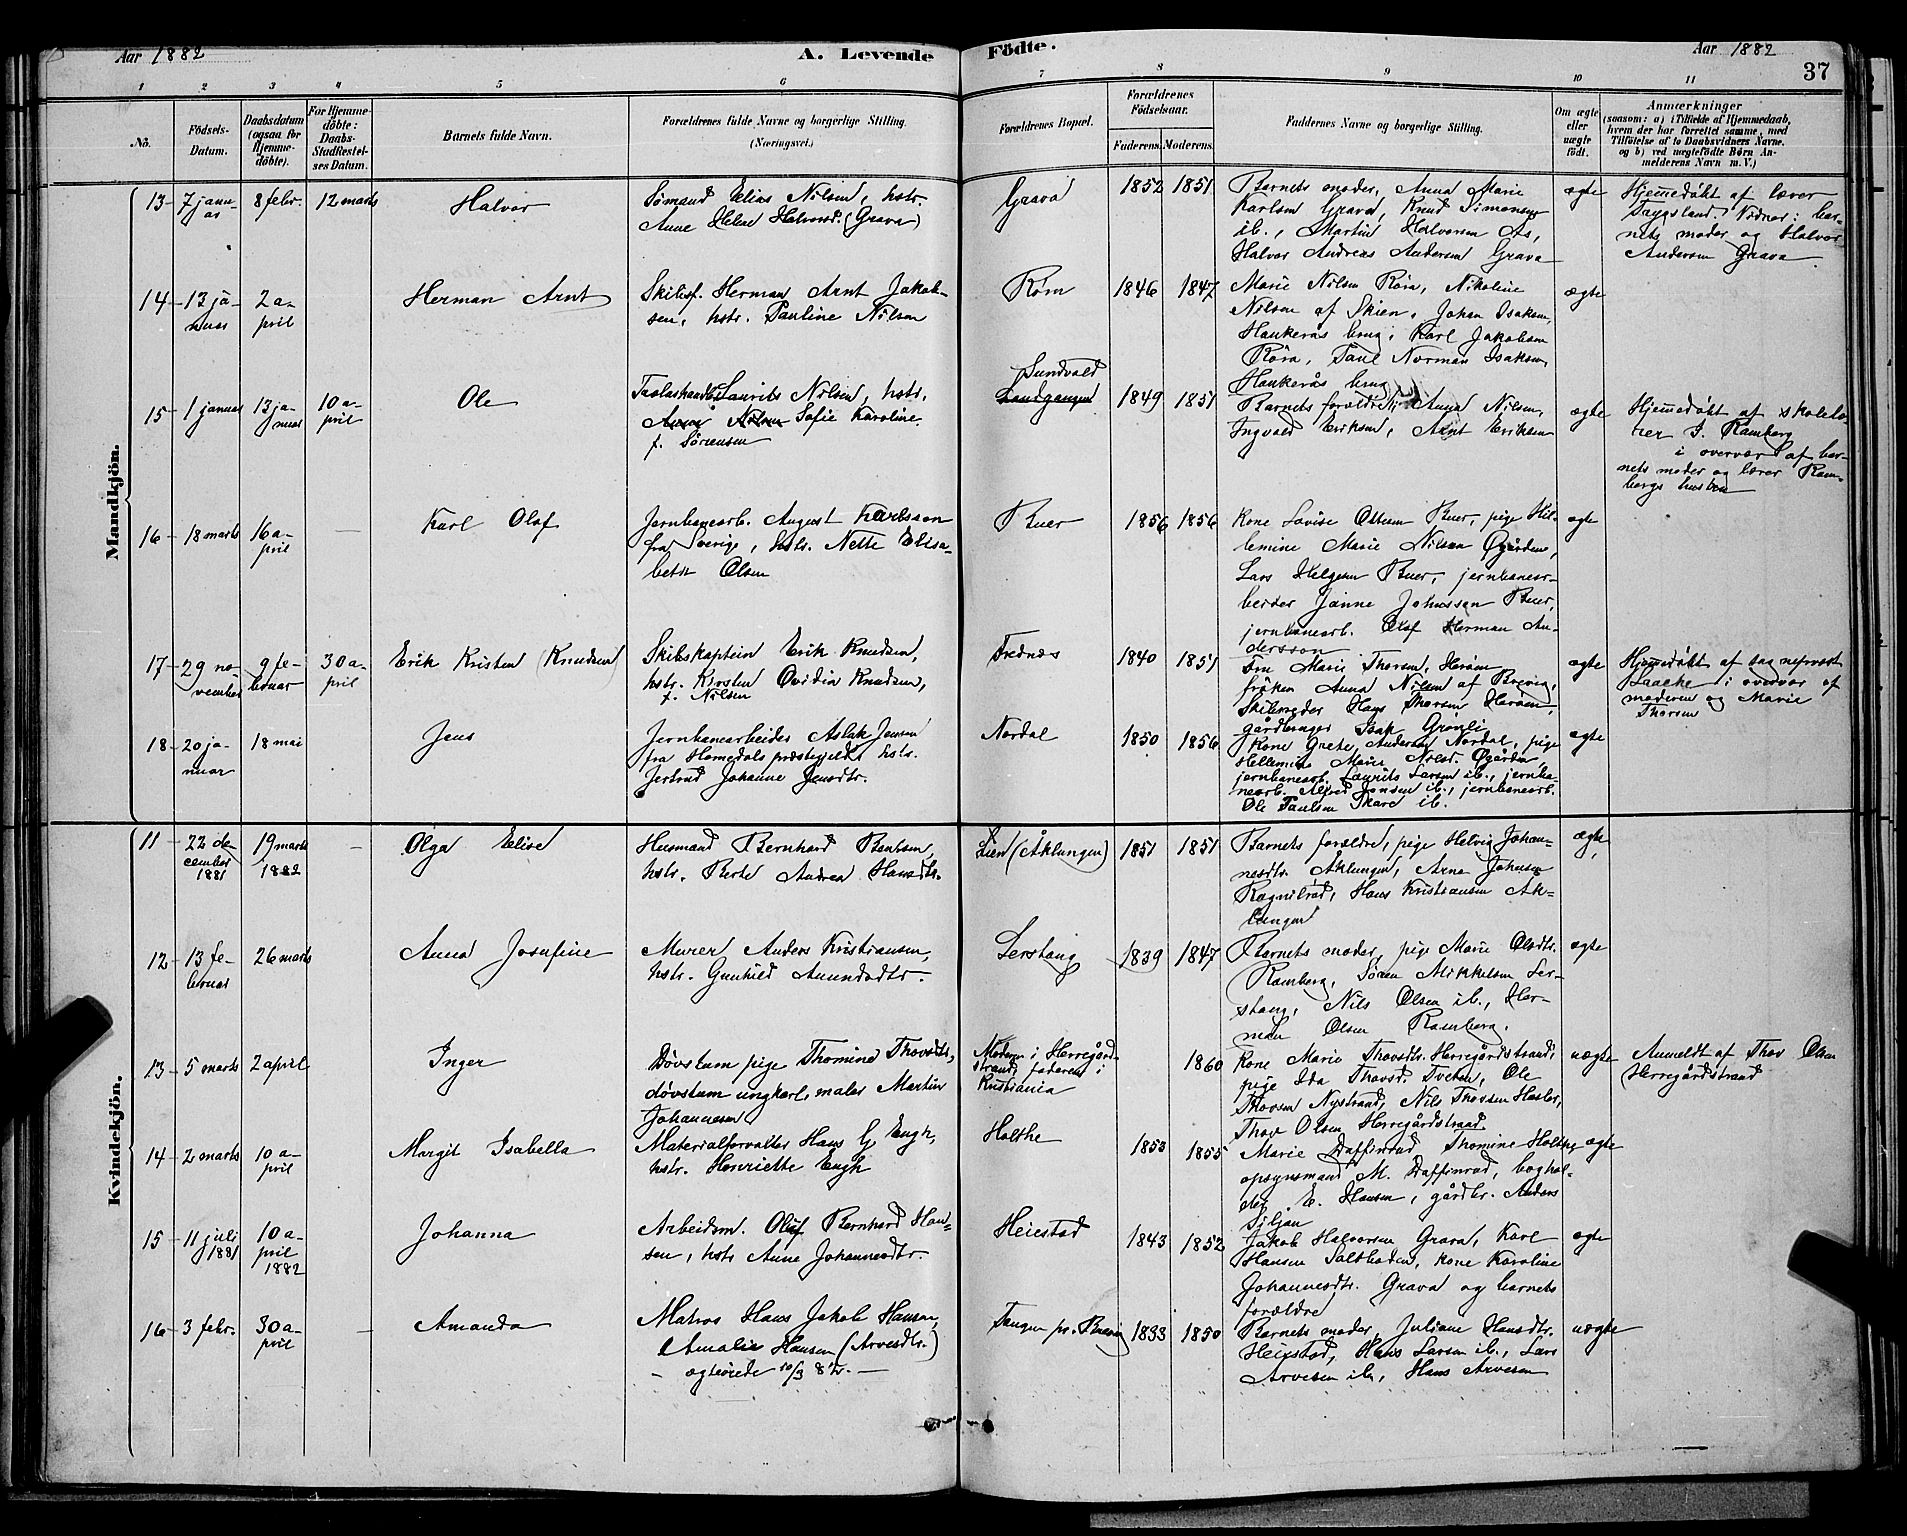 Aar 1882
A. Levende Födte.
Aar 1882
37
1 2 3 4 5 6 7 8 9 10 11
No.
Födsels-Datum.
Daabsdatum (ogsaa for Hjemmedöbte).
For Hjemmedöbte: Daabs Stadfestelses Datum.
Barnets fulde Navn.
Forældrenes fulde Navne og borgerlige Stilling. (Næringsvei.)
Forældrenes Bopæl.
Forældrenes Födselsaar.
Faderens. Moderens.
Faddernes Navne og borgerlige Stilling.
Om ægte eller uægte födt.
Anmærkninger (saasom: a) i Tilfælde af Hjemmedaab, hvem der har forrettet samme, med Tilföielse af to Daabsvidners Navne, og b) ved uægtefödte Börn Anmelderens Navn m. V.)
Mandkjön.
13 7 januar 8 febr. 12 marts
Halvor
Sømand Elias Nilsen, hstr.
Anne Helene Halvorsd. (Grava)
Grava
1852 1851
Barnets moder, Anna Marie
Karlsen Grava, Knud Simonsen
ib., Martin Halvorsen Ås,
Halvor Andreas Andersen Grava
ægte
Hjemmedøbt af lærer
Trygsland. Vidner: bar-
nets moder og Halvor
Andersen Grava
14 13 januar 2 april
Herman Arnt
Skibsf. Herman Arnt Jakob-
sen, hstr. Pauline Nilsen
Røra
1846 1847
Marie Nilsen Røra, Nikoline
Nilsen af Skien, Johan Isaksen,
Haukerås brug, Karl Jakobsen
Røra, Paul Norman Isaksen,
Haukerås brug
ægte
15 1 januar 13 januar 10 april
Ole
Laurits Nilsen, hstr.
Sofie Karoline
f. Sørensen
Sundvold
1849 1851
Barnets forældre, Anna Nilsen,
Ingvald Eriksen, Arnt Eriksen
ægte
Hjemmedøbt af skolelæ-
rer J. Ramberg
i overvær af bar-
nets moder og lærer Ram-
bergs hustru
16 18 marts 16 april —
Karl Olaf
Jernbanearb. August Karlsson
fra Sverige, hstr. Nette Elisa-
beth Olsen
Buer
1856 1856
Kone Lovise Olsen Buer, pige Hil-
lemine Marie Nilsen Øgården,
Lars Helgesen Buer, jernbanear-
beider Janne Johnssen Buer,
jernbanearb. Olaf Herman An-
dersson
ægte
17 29 november 9 februar 30 april
Erik Kristen (Knudsen)
Skibskaptein Erik Knudsen,
hstr. Kirsten Ovidia Knudsen,
f. Nilsen
Frednes
1840 1851
Fru Marie Thorsen, Herøen,
frøken Anna Nilsen af Brevig,
Skibsreder Hans Thorsen Herøen,
gårdbruger Isak Grønli
ægte
Hjemmedøbt af sogneprest
Laache i overvær af
moderen og Marie
Thorsen
18 20 januar 18 mai
Jens
Jernbanearbeider Aslak Jensen
fra Homedals præstegjeld, hstr.
Jertrud Johanne Jensdtr.
Nordal
1850 1856
Kone Grete Andersen Nordal, pige
Hellemine Marie Nilsd. Øgården,
jernbanearb. Laurits Larsen ib., jernba-
nearb. Alfred Jonsen ib., jernbanearb.
Ole Paulsen Skare ib.
ægte
Kvindekjön.
11 22 december 1881 19 marts 1882 —
Olga Elise
Husmand Bernhard Bentsen,
hstr. Berte Andrea Hansdtr.
Lien (Åklungen)
1851 1851
Barnets forældre, pige Helvig Johan-
nesdtr. Åklungen, Arne Johnsen
Ragnilrød, Hans Kristiansen Åk-
lungen
ægte
12 13 februar 26 marts
Anna Josefine
Murer Anders Kristiansen,
hstr. Gunhild Amundsdtr.
Lerstang
1839 1847
Barnets moder, pige Marie Olsdtr.
Ramberg, Søren Mikkelsen Ler-
stang, Nils Olsen ib., Her-
man Olsen Ramberg.
ægte
13 5 marts 2 april
Inger
Døvstum pige Thomine Thovsdtr.,
døvstum ungkarl, maler Martin
Johannesen
Moderen i Herregård-
strand, faderen i
Kristiania
1860
Kone Marie Thovsdtr. Herregårdstrand,
pige Ida Thovsd. Tveten, Ole
Thovsen Nystrand, Nils Thovsen Hasler,
Thov Olsen Herregårdstrand
uægte
Anmeldt af Thov Olsen
Herregårdstrand
14 2 marts 10 april
Margit Isabella
Materialforvalter Hans G. Engh,
hstr. Henriette Engh
Holthe
1853 1855
Marie Daffinrud, Thomine Holthe,
opsynsmand M. Daffinrud, boghol-
der E. Hansen, gårdbr. Anders
Siljan
ægte
15 11 juli 1881 10 april 1882
Johanna
Arbeidsm. Oluf Bernhard Han-
sen, hstr. Anne Johannesdtr.
Heiestad
1843 1852
Jakob Halvorsen Grava, Karl
Hansen Saltboden, kone Karoline
Johannesdtr. Grava og barnets
forældre
ægte
16 3 febr. 30 april —
Amanda
Matros Hans Jakob Hansen,
Amalie Hansen (Arvesdtr.)
— ægteviede 10/3 82. —
Tangen pr. Brevig
1833 1850
Barnets moder, Juliane Hansdtr.
Heiestad, Hans Larsen ib., Lars
Arvesen ib., Hans Arvesen
uægte